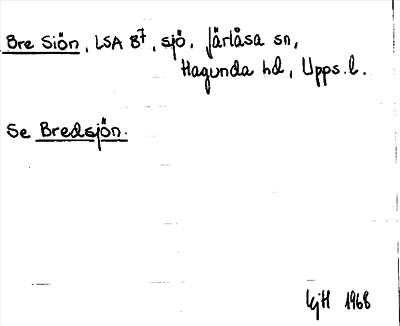 Bre Siön, LSA B⁷, sjö, Järlåsa sn,
Hagunda hd, Upps. l.
Se Bredsjön.
KjH 1968